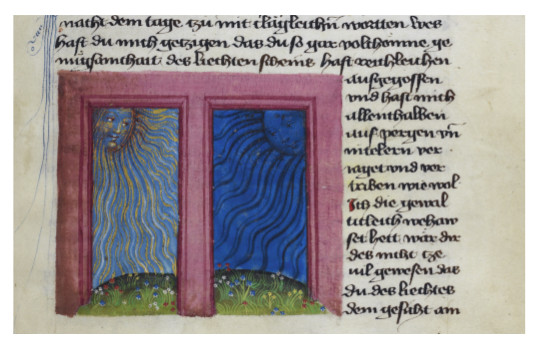 nacht dem tage tzu mit clagleichn wortten wes
hast du mich getzigen das du so gar volkhomne ge
nugsamhait des liechten scheins hast verzleichen
ausgegossen
vnd hast mich
allenthalben
auf pergen vn
nickern ver
iaget vnd ver
triben wie wol
Ich die gewal
titleich
set hett war dir
des nicht tze
uil gewesen das
du des liechtes
dem gesicht am